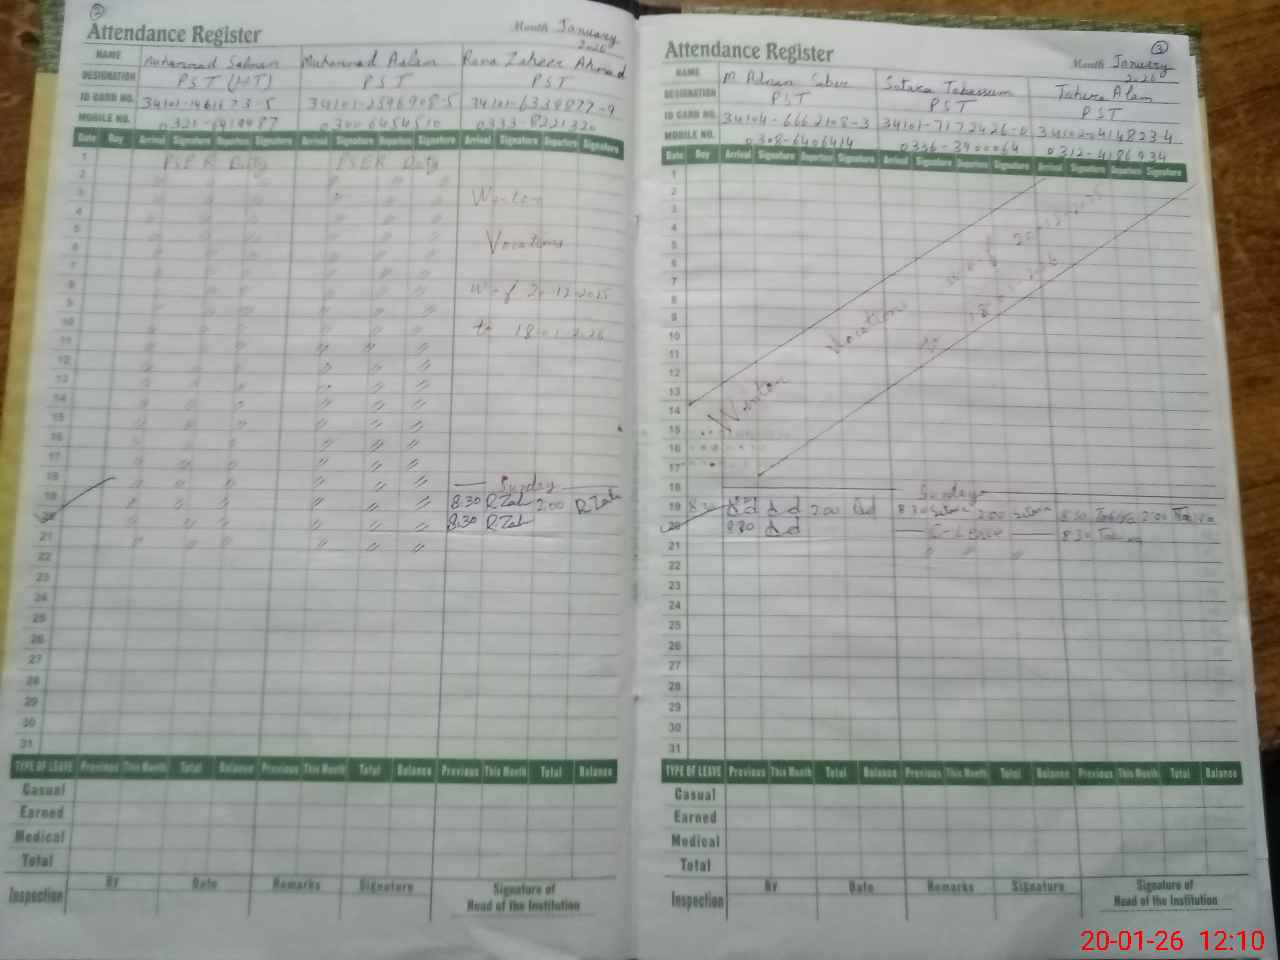 2
Attendance Register
Month January
2026
NAME Muhammad Salman Muhammad Aslam Rana Zaheer Ahmad
DESIGNATION PST (HT) PST PST
ID CARD NO. 34101-2596908-5 34101-6339877-9
MOBILE NO. 0300 6454510 0333-8221320
Date Day Arrival Signature Departure Signature Arrival Signature Departure Signature Arrival Signature Departure Signature
1 PSER Duty PSER Duty
2
3
4
5
6 Vacations
7
8 w-e-f 20-12-2025
9
10 to 18-01-2026
11
12
13
14
15
16
17
18 Sunday
19 8:30 R.Zah 2:00 R.Zah
20 8:30 R.Zah
21
22
23
24
25
26
27
28
29
30
31
TYPE OF LEAVE Previous This Month Total Balance Previous This Month Total Balance Previous This Month Total Balance
Casual
Earned
Medical
Total
Inspection By Date Remarks Signature Signature of
Head of the Institution
3
Attendance Register
Month January
2026
NAME M Adnan Sabir Tabassum Alam
DESIGNATION PST PST PST
ID CARD NO. 34104-6662108-3
MOBILE NO. 0308-6406414 0312-4186934
Date Day Arrival Signature Departure Signature Arrival Signature Departure Signature Arrival Signature Departure Signature
1
2
3
4
5
6
7
8
9
10
11
12
13
14
15
16
17
18 Sunday
19 8:30 2:00 8:30 2:00 8:30 2:00
20 8:30 C-Leave 8:30
21
22
23
24
25
26
27
28
29
30
31
TYPE OF LEAVE Previous This Month Total Balance Previous This Month Total Balance Previous This Month Total Balance
Casual
Earned
Medical
Total
Inspection By Date Remarks Signature Signature of
Head of the Institution
20-01-26 12:10